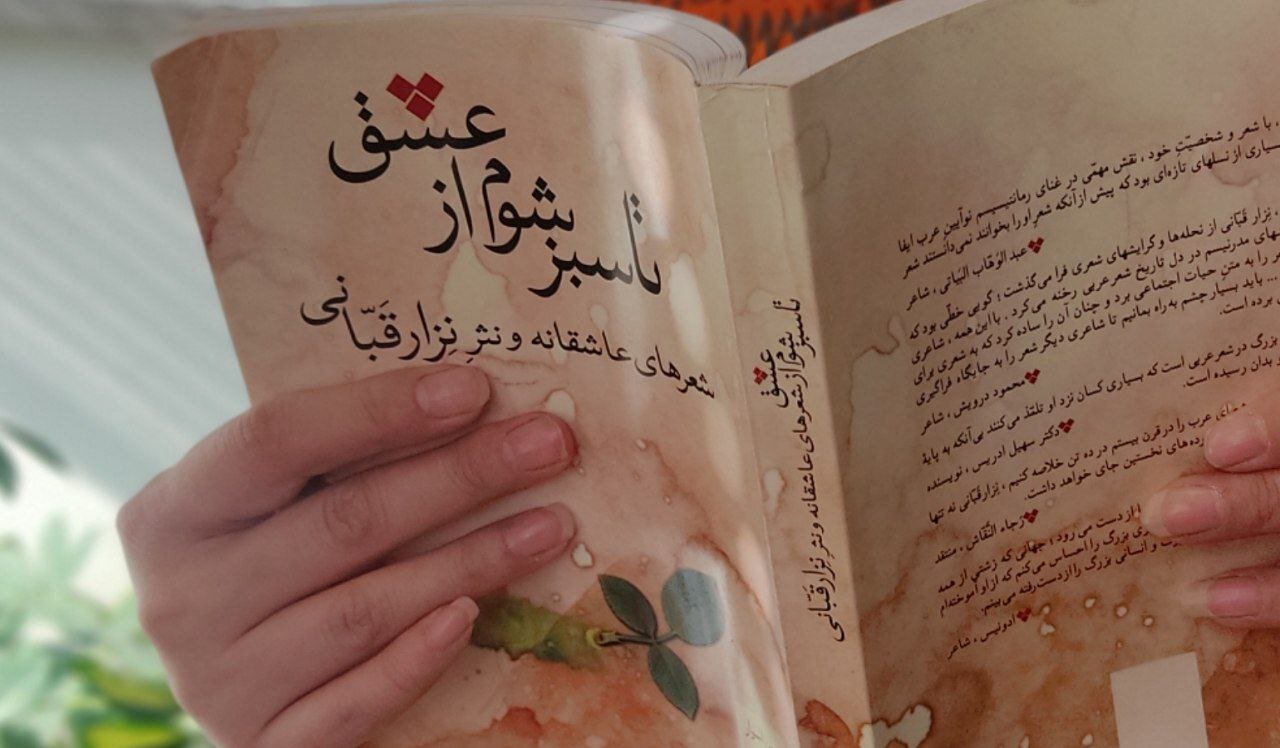 تا سبز شوم از عشق
شعرهای عاشقانه و نثرِ نِزار قَبّانی
تا سبز شوم از عشق
شعرهای عاشقانه و نثرِ نِزار قَبّانی
، با شعر و شخصیّتِ خود ، نقش مهمّی در غنای رمانتیسیسم نوآیین عرب ایفا
بسیاری از نسلهای تازه‌ای بود که پیش از آنکه شعرِ او را بخوانند نمی‌دانستند شعر
عبدالوَهّاب البَیاتی ، شاعر
نِزار قَبّانی از نحله‌ها و گرایشهای شعری فرا می‌گذشت ؛ گویی خطّی بود که
مدرنیسم در دل تاریخ شعر عربی رخنه می‌کرد . با این همه ، شاعری
را به متنِ حیات اجتماعی برد و چنان آن را ساده کرد که به شعری برای
... باید بسیار چشم به راه بمانیم تا شاعری دیگر شعر را به جایگاه فراگیری
برده است.
محمود درویش ، شاعر
بزرگ در شعر عربی است که بسیاری کسان نزد او تلمّذ می‌کنند بی‌آنکه به پایهٔ
بدان رسیده است.
دکتر سهیل ادریس ، نویسنده
عرب را در قرن بیستم در ده تن خلاصه کنیم ، نِزار قَبّانی نه تنها
رده‌های نخستین جای خواهد داشت.
رَجاء النَّقاش ، منتقد
از دست می رود ؛ جهانی که زشتی از همه
بزرگ را احساس می‌کنم که از او آموخته‌ام
و انسانی بزرگ را از دست رفته می بینم.
ادونیس ، شاعر